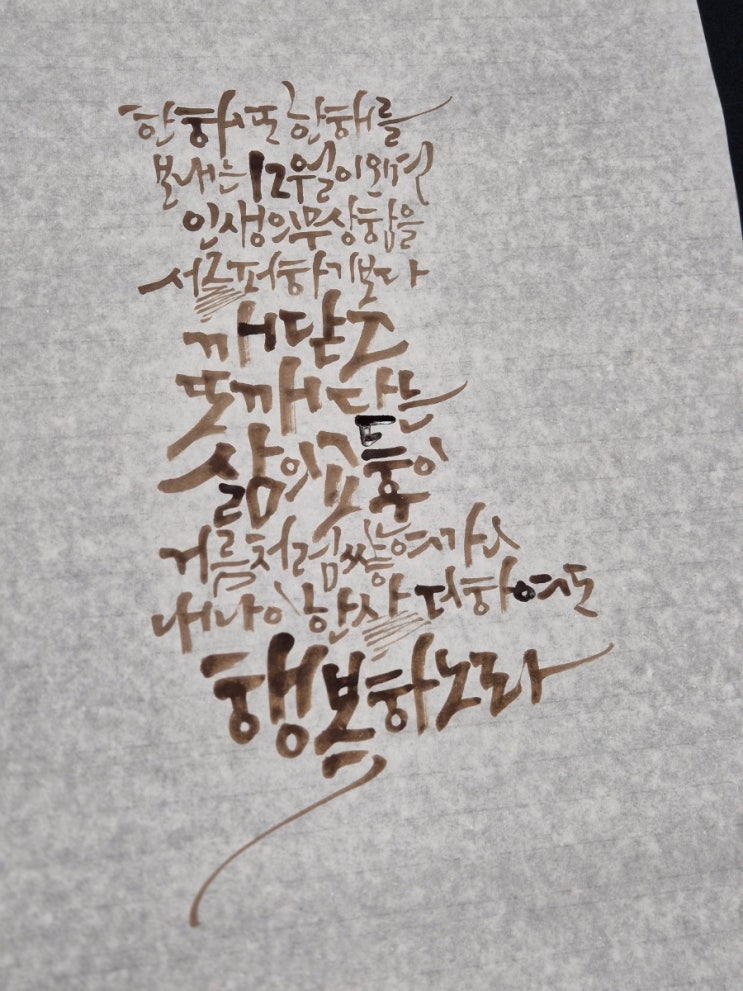 한해 또 한해를
보내는 12월이 오면
인생의 무상함을
서글퍼하기보다
깨닫고
또 깨닫는
삶의 교훈이
거름처럼 쌓여가니
내 나이 한 살 더하여도
행복하노라